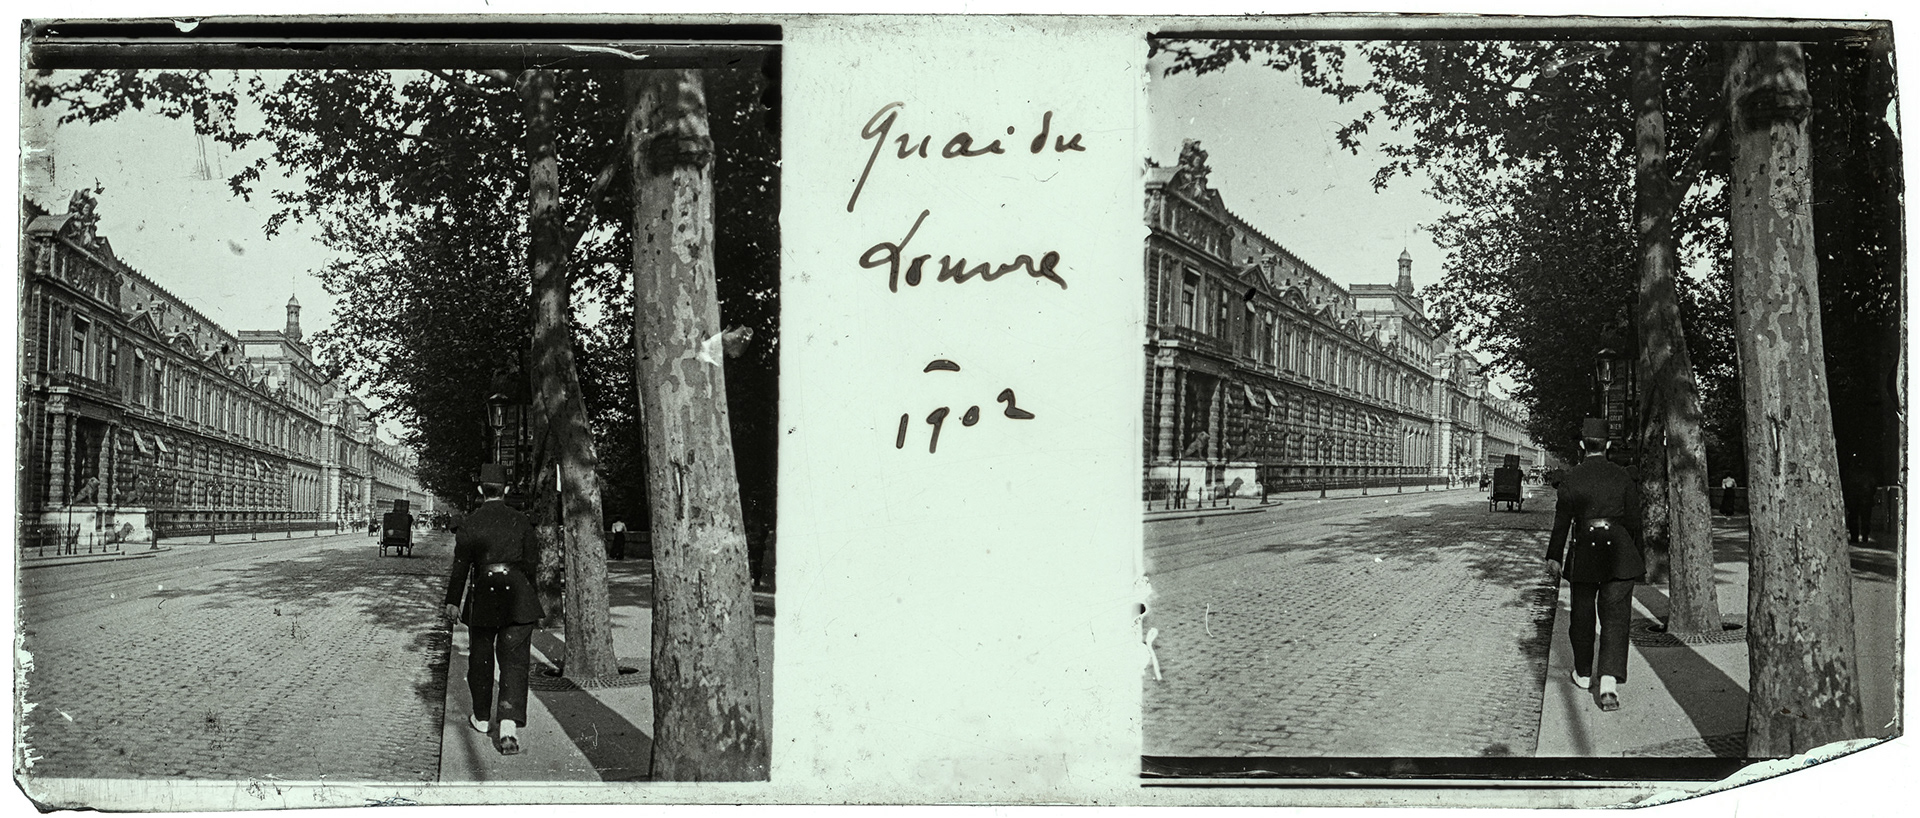 Quai du
Louvre
1902